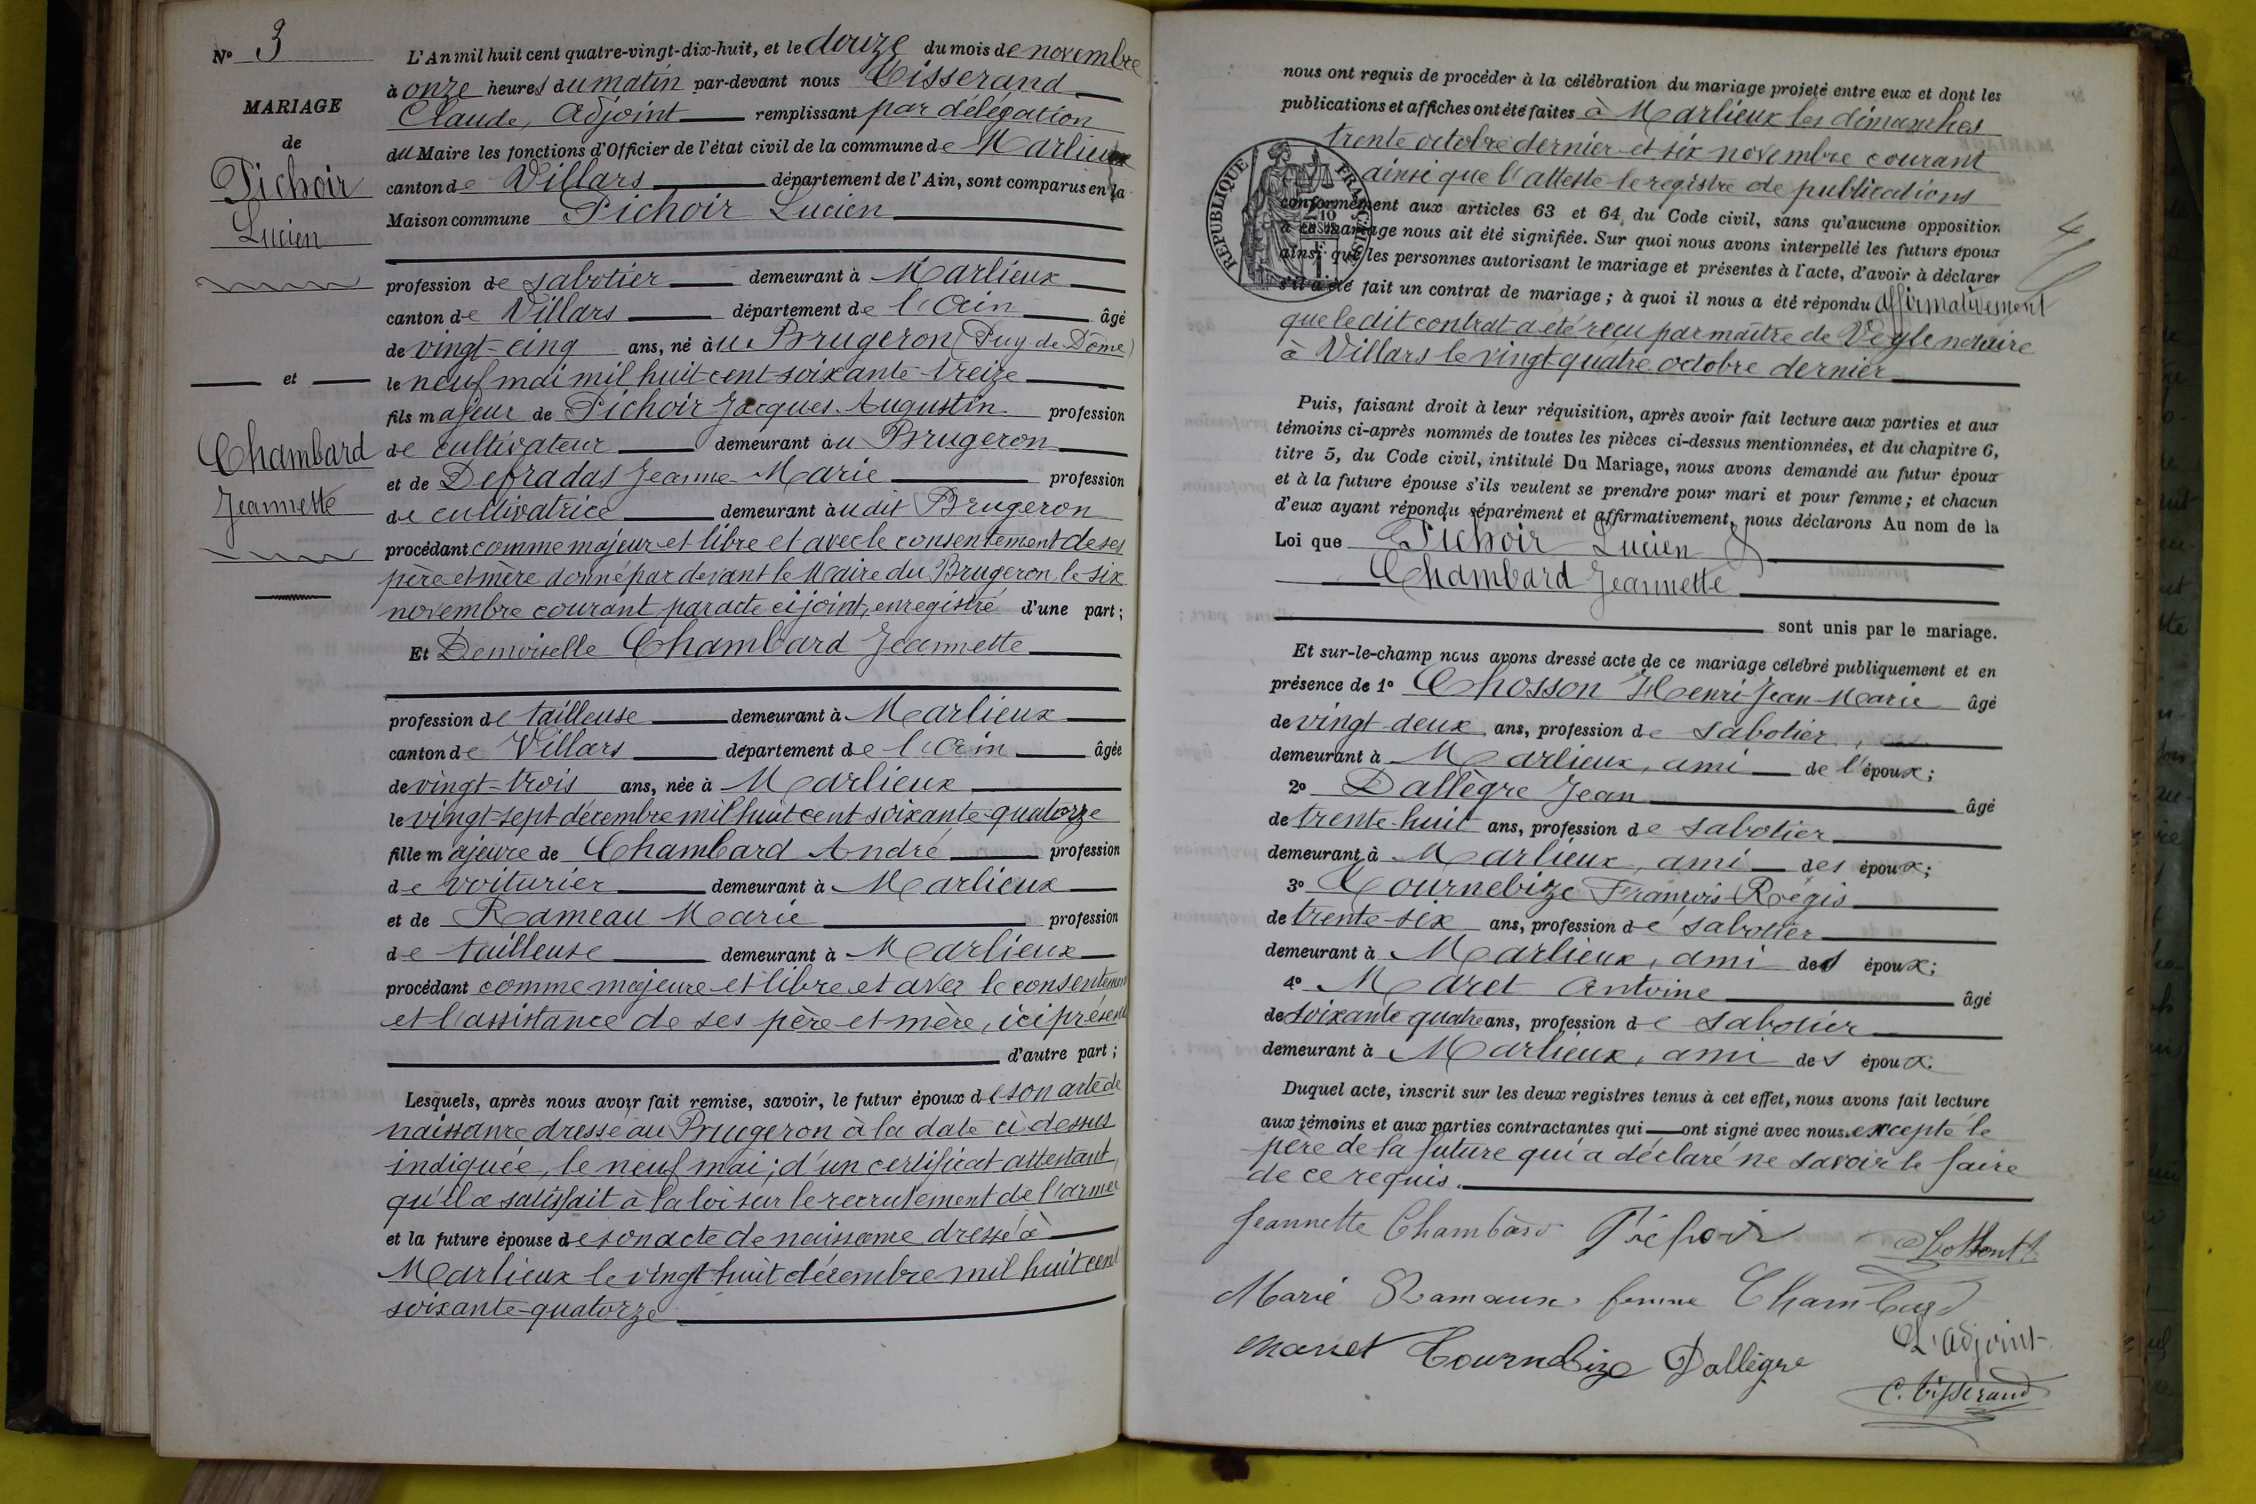 N° 3
MARIAGE
de
Pichoir
Lucien
et
Chambard
Jeannette
L'An mil huit cent quatre-vingt-dix-huit, et le douze du mois de novembre
à onze heures du matin par-devant nous Tisserand
Claude, Adjoint remplissant par délégation
du Maire les fonctions d'Officier de l'état civil de la commune de Marlieux
canton de Villars département de l'Ain, sont comparus en la
Maison commune Pichoir Lucien
profession de sabotier demeurant à Marlieux
canton de Villars département de l'Ain âgé
de vingt-cinq ans, né au Brugeron (Puy de Dôme)
le neuf mai mil huit cent soixante-treize
fils majeur de Pichoir Jacques Augustin profession
de cultivateur demeurant au Brugeron
et de Defradas Jeanne-Marie profession
de cultivatrice demeurant au dit Brugeron
procédant comme majeur et libre et avec le consentement de ses
père et mère donné par devant le Maire du Brugeron le six
novembre courant par acte ci joint, enregistré d'une part;
Et Demoiselle Chambard Jeannette
profession de tailleuse demeurant à Marlieux
canton de Villars département de l'Ain âgée
de vingt-trois ans, née à Marlieux
le vingt-sept décembre mil huit cent soixante-quatorze
fille majeure de Chambard André profession
de voiturier demeurant à Marlieux
et de Rameau Marie profession
de tailleuse demeurant à Marlieux
procédant comme majeure et libre et avec le consentement
et l'assistance de ses père et mère, ici présents
d'autre part;
Lesquels, après nous avoir fait remise, savoir, le futur époux de son acte de
naissance dressé au Brugeron à la date ci dessus
indiquée, le neuf mai; d'un certificat attestant
qu'il a satisfait à la loi sur le recrutement de l'armée
et la future épouse de son acte de naissance dressé à
Marlieux le vingt huit décembre mil huit cent
soixante-quatorze
nous ont requis de procéder à la célébration du mariage projeté entre eux et dont les
publications et affiches ont été faites à Marlieux les dimanches
trente octobre dernier et six novembre courant
ainsi que l'atteste le registre de publications
conformément aux articles 63 et 64 du Code civil, sans qu'aucune opposition
à ce mariage nous ait été signifiée. Sur quoi nous avons interpellé les futurs époux
ainsi que les personnes autorisant le mariage et présentes à l'acte, d'avoir à déclarer
s'il a été fait un contrat de mariage; à quoi il nous a été répondu affirmativement
que le dit contrat a été reçu par maître de Veyle notaire
à Villars le vingt quatre octobre dernier
RÉPUBLIQUE FRANÇAISE
Puis, faisant droit à leur réquisition, après avoir fait lecture aux parties et aux
témoins ci-après nommés de toutes les pièces ci-dessus mentionnées, et du chapitre 6,
titre 5, du Code civil, intitulé Du Mariage, nous avons demandé au futur époux
et à la future épouse s'ils veulent se prendre pour mari et pour femme; et chacun
d'eux ayant répondu séparément et affirmativement, nous déclarons Au nom de la
Loi que Pichoir Lucien &
Chambard Jeannette
sont unis par le mariage.
Et sur-le-champ nous avons dressé acte de ce mariage célébré publiquement et en
présence de 1° Chosson Henri-Jean-Marie âgé
de vingt-deux ans, profession de sabotier,
demeurant à Marlieux, ami de l'époux;
2° Dallègre Jean âgé
de trente-huit ans, profession de sabotier
demeurant à Marlieux, ami des époux;
3° Tournebize François Régis
de trente-six ans, profession de sabotier
demeurant à Marlieux, ami des époux;
4° Maret Antoine âgé
de soixante quatre ans, profession de sabotier
demeurant à Marlieux, ami des époux.
Duquel acte, inscrit sur les deux registres tenus à cet effet, nous avons fait lecture
aux témoins et aux parties contractantes qui ont signé avec nous excepté le
père de la future qui a déclaré ne savoir le faire
de ce requis.
Jeannette Chambard Pichoir
Marie Ramaux femme Chambard
L'adjoint
Marret Tournebize Dallègre
C. Tisserand